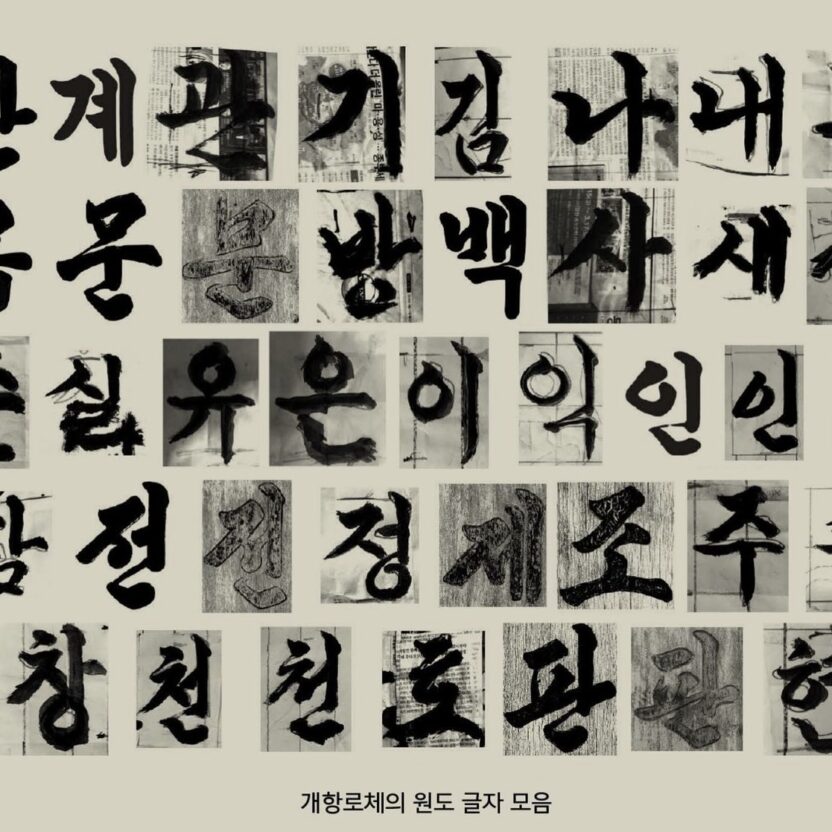 계 관 기 김 나 내
문 문 방 백 사 새
실 유 은 이 익 인 인
전 전 정 제 조 주
창 천 천 호 판 판 현
개항로체의 원도 글자 모음